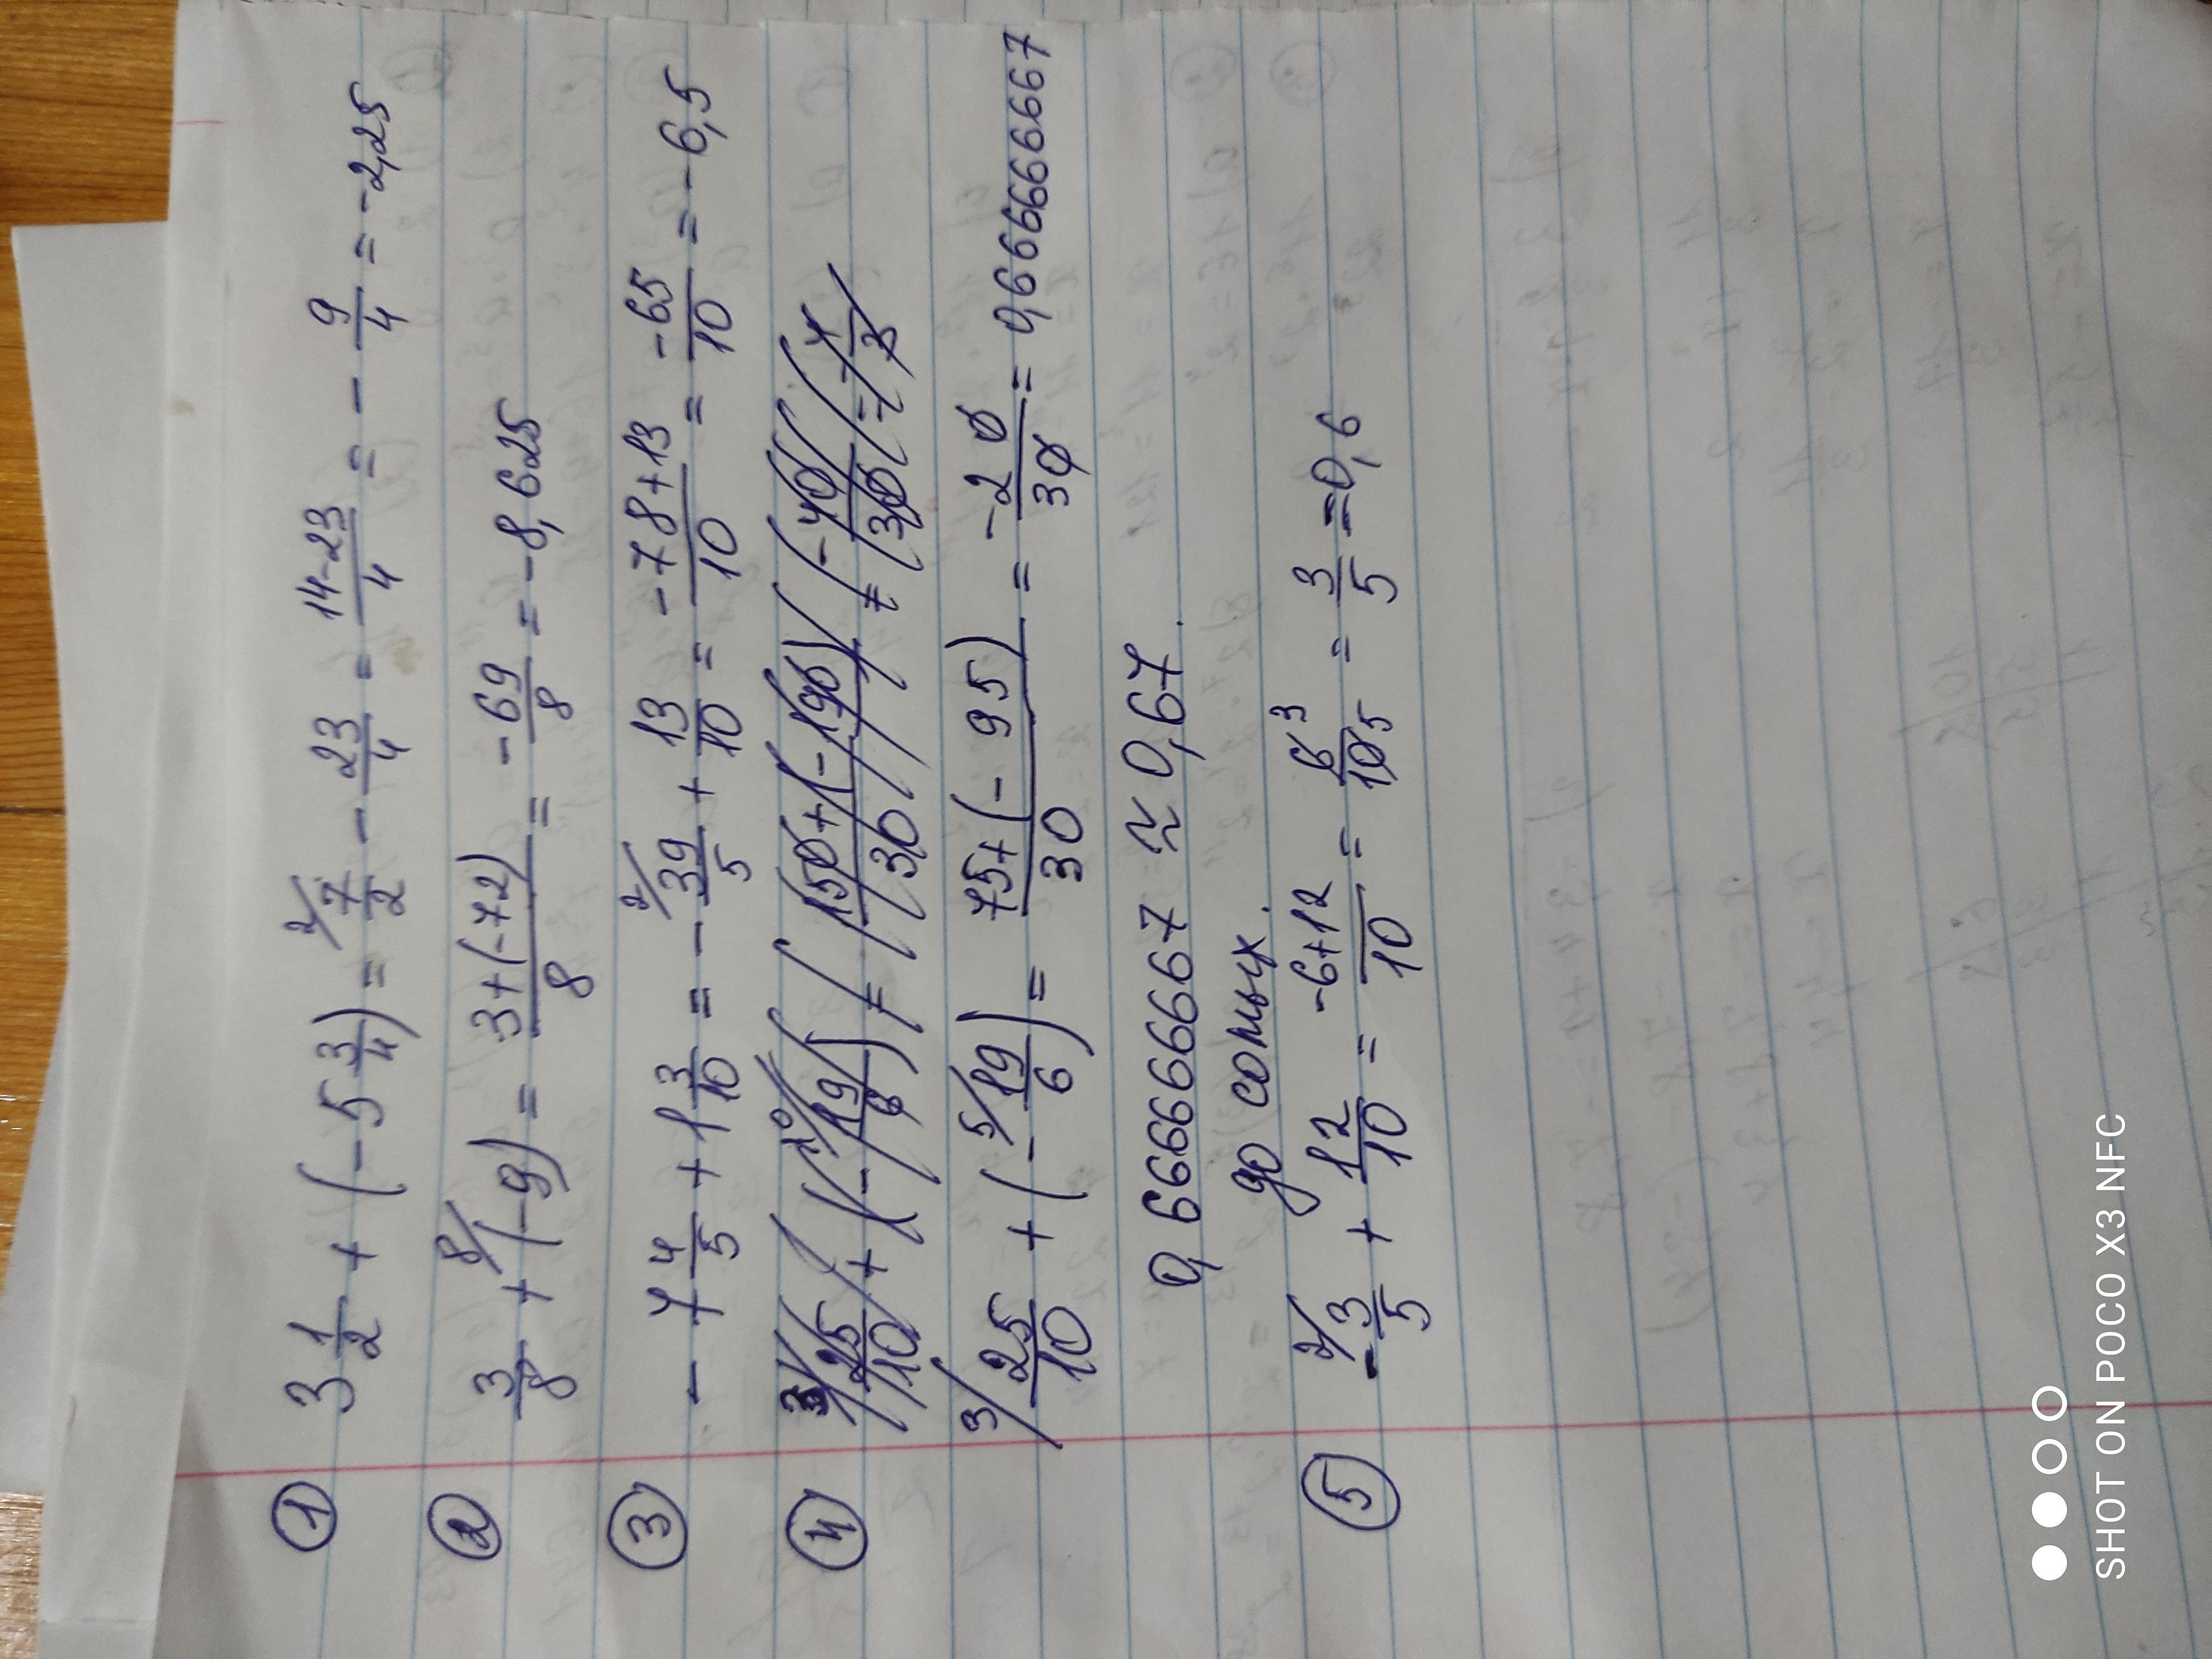 ① 3 1/2 + (-5 3/4) = 2/ 7/2 - 23/4 = 14-23/4 = - 9/4 = -2,25
② 3/8 + 8/ (-9) = 3+(-72)/8 = -69/8 = -8,625
③ - 7 4/5 + 1 3/10 = - 2/ 39/5 + 13/10 = -78+13/10 = -65/10 = -6,5
④ 3/ 25/10 + (- 10/ 19/6) = 150+(-190)/30 = -40/30 = - 4/3
3/ 25/10 + (- 5/ 19/6) = 75+(-95)/30 = -20/30 = 0,6666666667
0,6666666667 ≈ 0,67
до сотых.
⑤ - 2/ 3/5 + 12/10 = -6+12/10 = 6 3/10 5 = 3/5 = 0,6
SHOT ON POCO X3 NFC